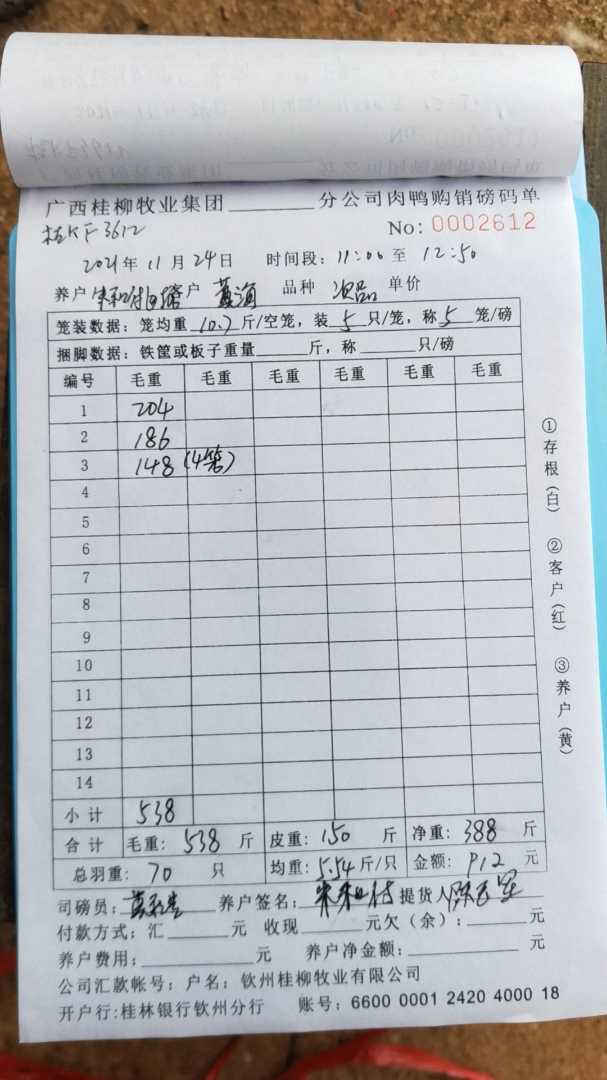 广西桂柳牧业集团________分公司肉鸭购销磅码单
No: 0002612
2021年11月24日 时间段: 11:00 至 12:50
养户 客户 品种 次品 单价
笼装数据: 笼均重 10.7 斤/空笼, 装 5 只/笼, 称 5 笼/磅
捆脚数据: 铁筐或板子重量______斤, 称______只/磅
编号 毛重 毛重 毛重 毛重 毛重 毛重
1 204
2 186
3 148 (4笼)
4
5
6
7
8
9
10
11
12
13
14
小计 538
合计 毛重: 538 斤 皮重: 150 斤 净重: 388 斤
总羽重: 70 只 均重: 5.54 斤/只 金额: 912 元
司磅员: 养户签名: 提货人
付款方式: 汇______元 收现______元欠(余): ______元
养户费用: ________元 养户净金额: ________元
公司汇款帐号: 户名: 钦州桂柳牧业有限公司
开户行:桂林银行钦州分行 账号: 6600 0001 2420 4000 18
①存根(白) ②客户(红) ③养户(黄)